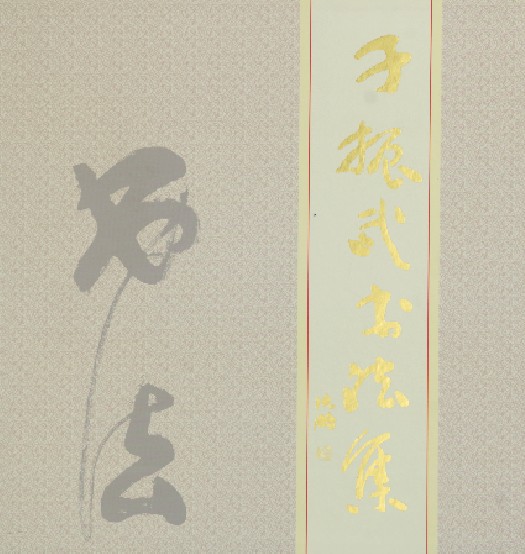 于振武书法集
书法